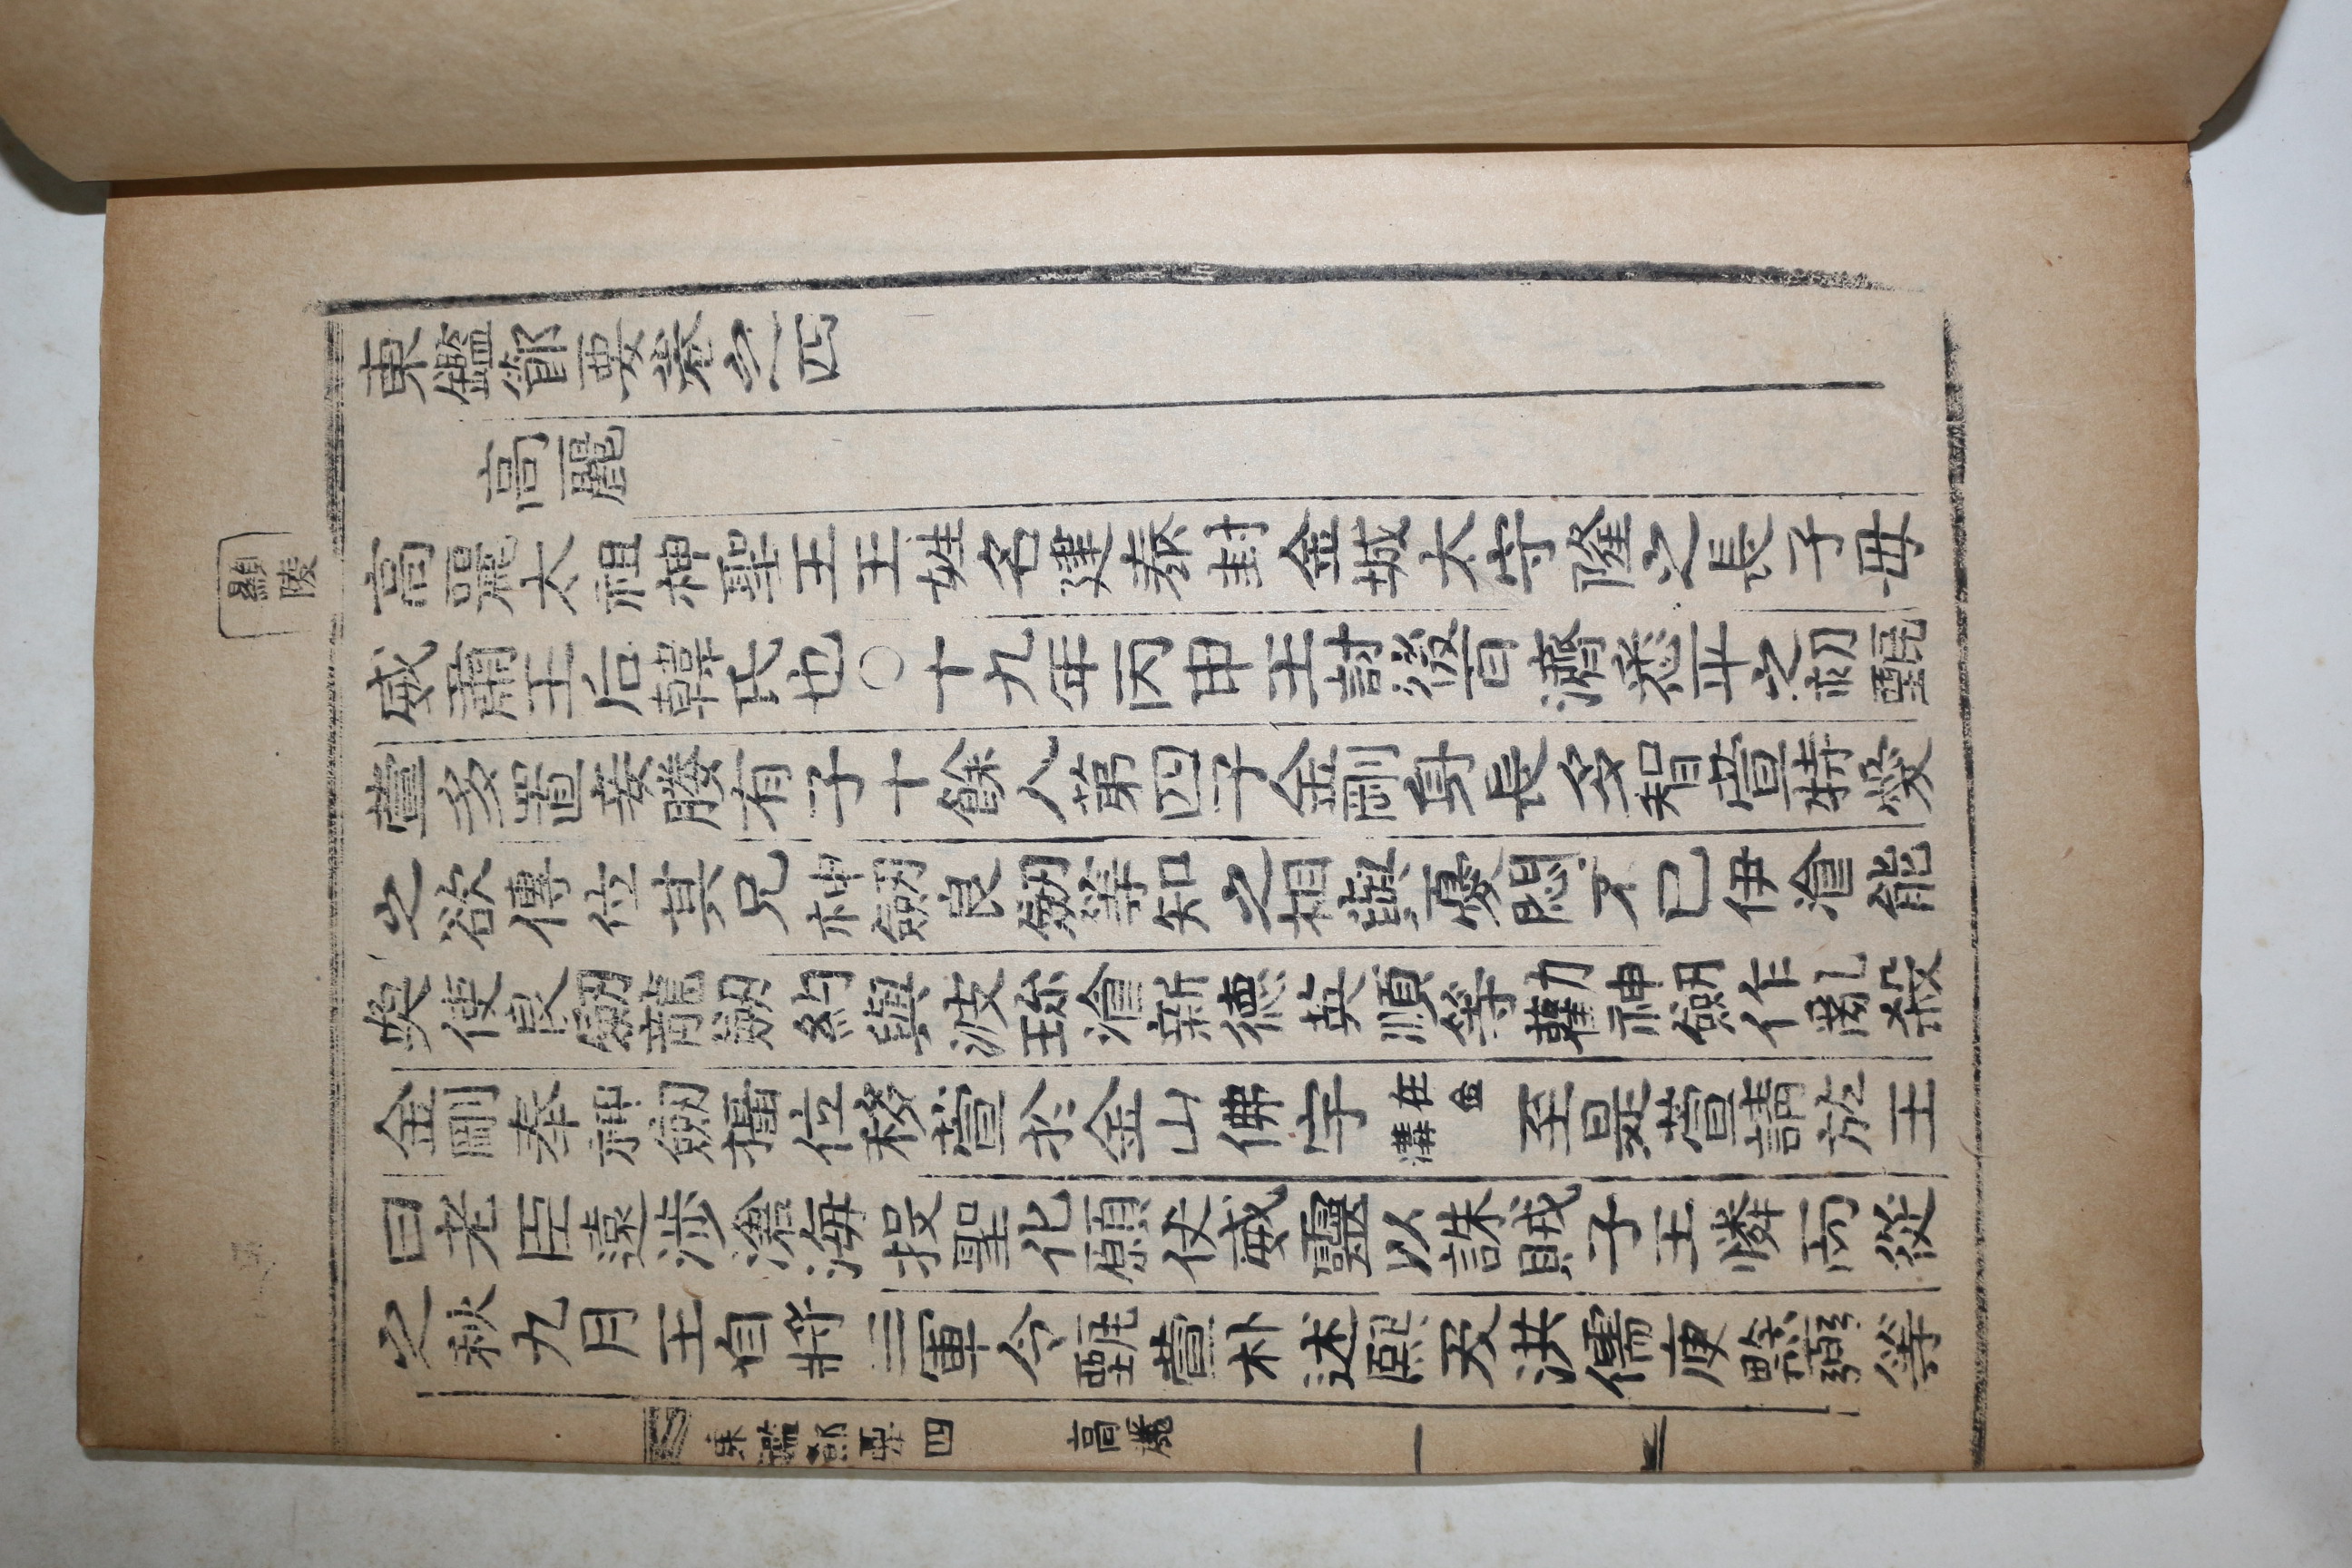 顯陵
東鑑節要卷之四
高麗
高麗太祖神聖王王姓名建泰封金城太守隆之長子母
威肅王后韓氏也○十九年丙申王討後百濟悉平之初甄
萱多置妾媵有子十餘人第四子金剛身長多智萱特愛
之欲傳位其兄神劒良劒等知之相與憂悶不已伊湌能
奐使良劒龍劒約與波珎湌新德英順等勸神劒作亂殺
金剛奉神劒攝位移萱於金山佛宇在金溝至是萱請於王
曰老臣遠涉滄海投聖化願仗威靈以誅賊子王憐而從
之秋九月王自將三軍令甄萱朴述熙及洪儒庾黔弼等
東鑑節要四 高麗 一